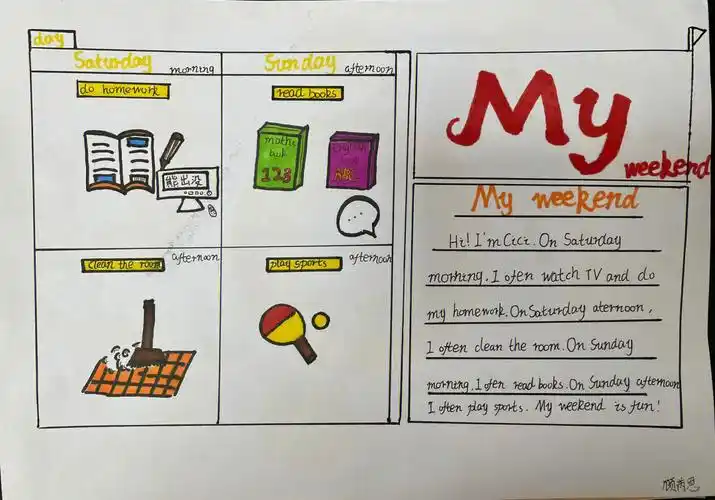 day
Saturday
morning
Sunday
afternoon
do homework
read books
maths
book
123
English
ABC
熊出没
clean the room
afternoon
play sports
afternoon
My
weekend
My weekend
Hi! I'm Cici. On Saturday
morning. I ofen watch TV and do
my homework. On Saturday aternoon,
I often clean the room. On Sunday
morning. I ofen read books. On Sunday afternoon
I often play sports. My weekend is fun!